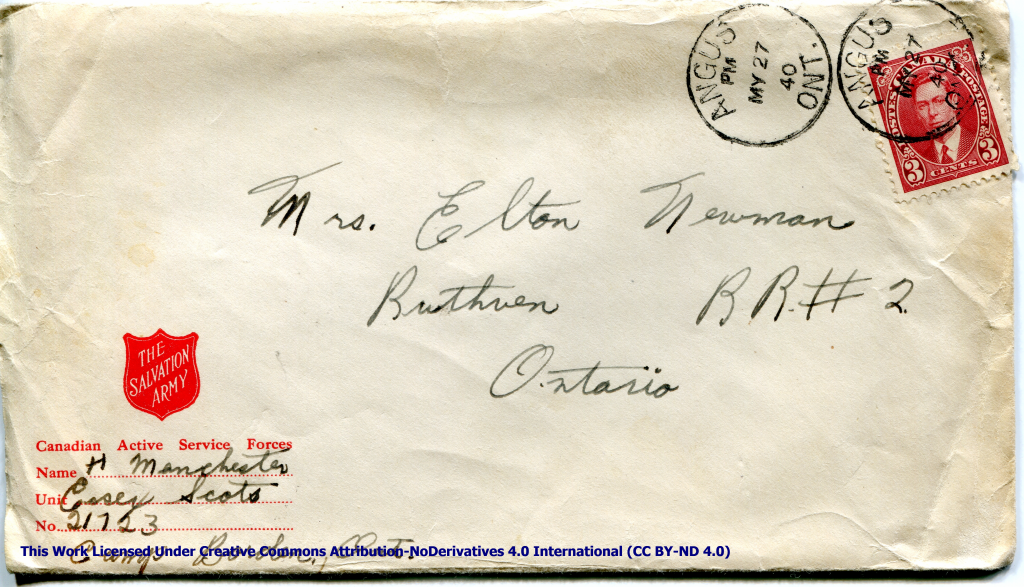 ANGUS ONT.
PM
MY 27
40
ANGUS
PM
MY 27
40
POSTES CANADA POSTAGE
3 CENTS 3
Mrs. Elton Newman
Ruthven R R. # 2
Ontario
THE
SALVATION
ARMY
Canadian Active Service Forces
Name H Manchester
Unit Essex Scots
No. 21723
Camp Borden, Ont.
This Work Licensed Under Creative Commons Attribution-NoDerivatives 4.0 International (CC BY-ND 4.0)